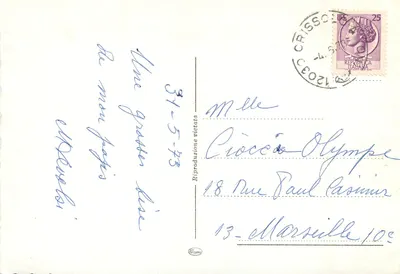 31-5-73
Une grosse bise
de mon pays
Riproduzione vietata
25
12030 CRISSOLO
Mlle
Cioccio Olympe
18 Rue Paul Casimir
13-Marseille 10e